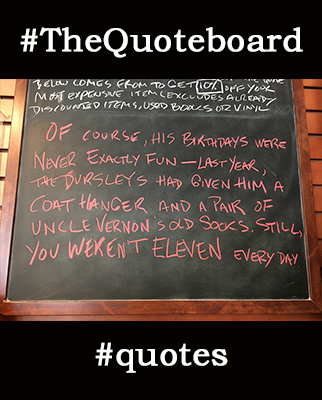 #TheQuoteboard
BELOW COMES FROM TO GET 10% OFF YOUR
MOST EXPENSIVE ITEM (EXCLUDES ALREADY
DISCOUNTED ITEMS, USED BOOKS OR VINYL
OF COURSE, HIS BIRTHDAYS WERE
NEVER EXACTLY FUN — LAST YEAR,
THE DURSLEYS HAD GIVEN HIM A
COAT HANGER AND A PAIR OF
UNCLE VERNON'S OLD SOCKS. STILL,
YOU WEREN'T ELEVEN EVERY DAY
#quotes